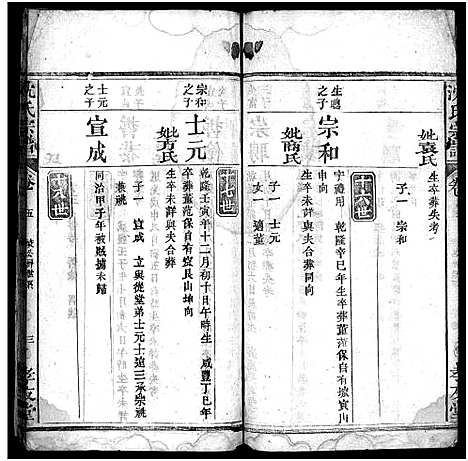 妣袁氏
生卒葬失考
子一 宗和
十六世
生聰之子
宗和
字禮用 乾隆辛巳年生卒葬董范保自有坡寅山
坤向
妣商氏
生卒未詳與夫合葬同向
子一 士元
女一 適董
十七世
宗和之子
士元
乾隆壬寅年十二月初十日午時生 咸豐丁巳年
卒葬董范保自有窰艮山坤向
妣方氏
生卒未詳與夫合葬
子一 宣成 立與從堂弟士元士迨三承宗祧
士元之子
宣成
兼祧
同治甲子年被賊擄未歸
沈氏宗譜
卷
五
三
孝友堂